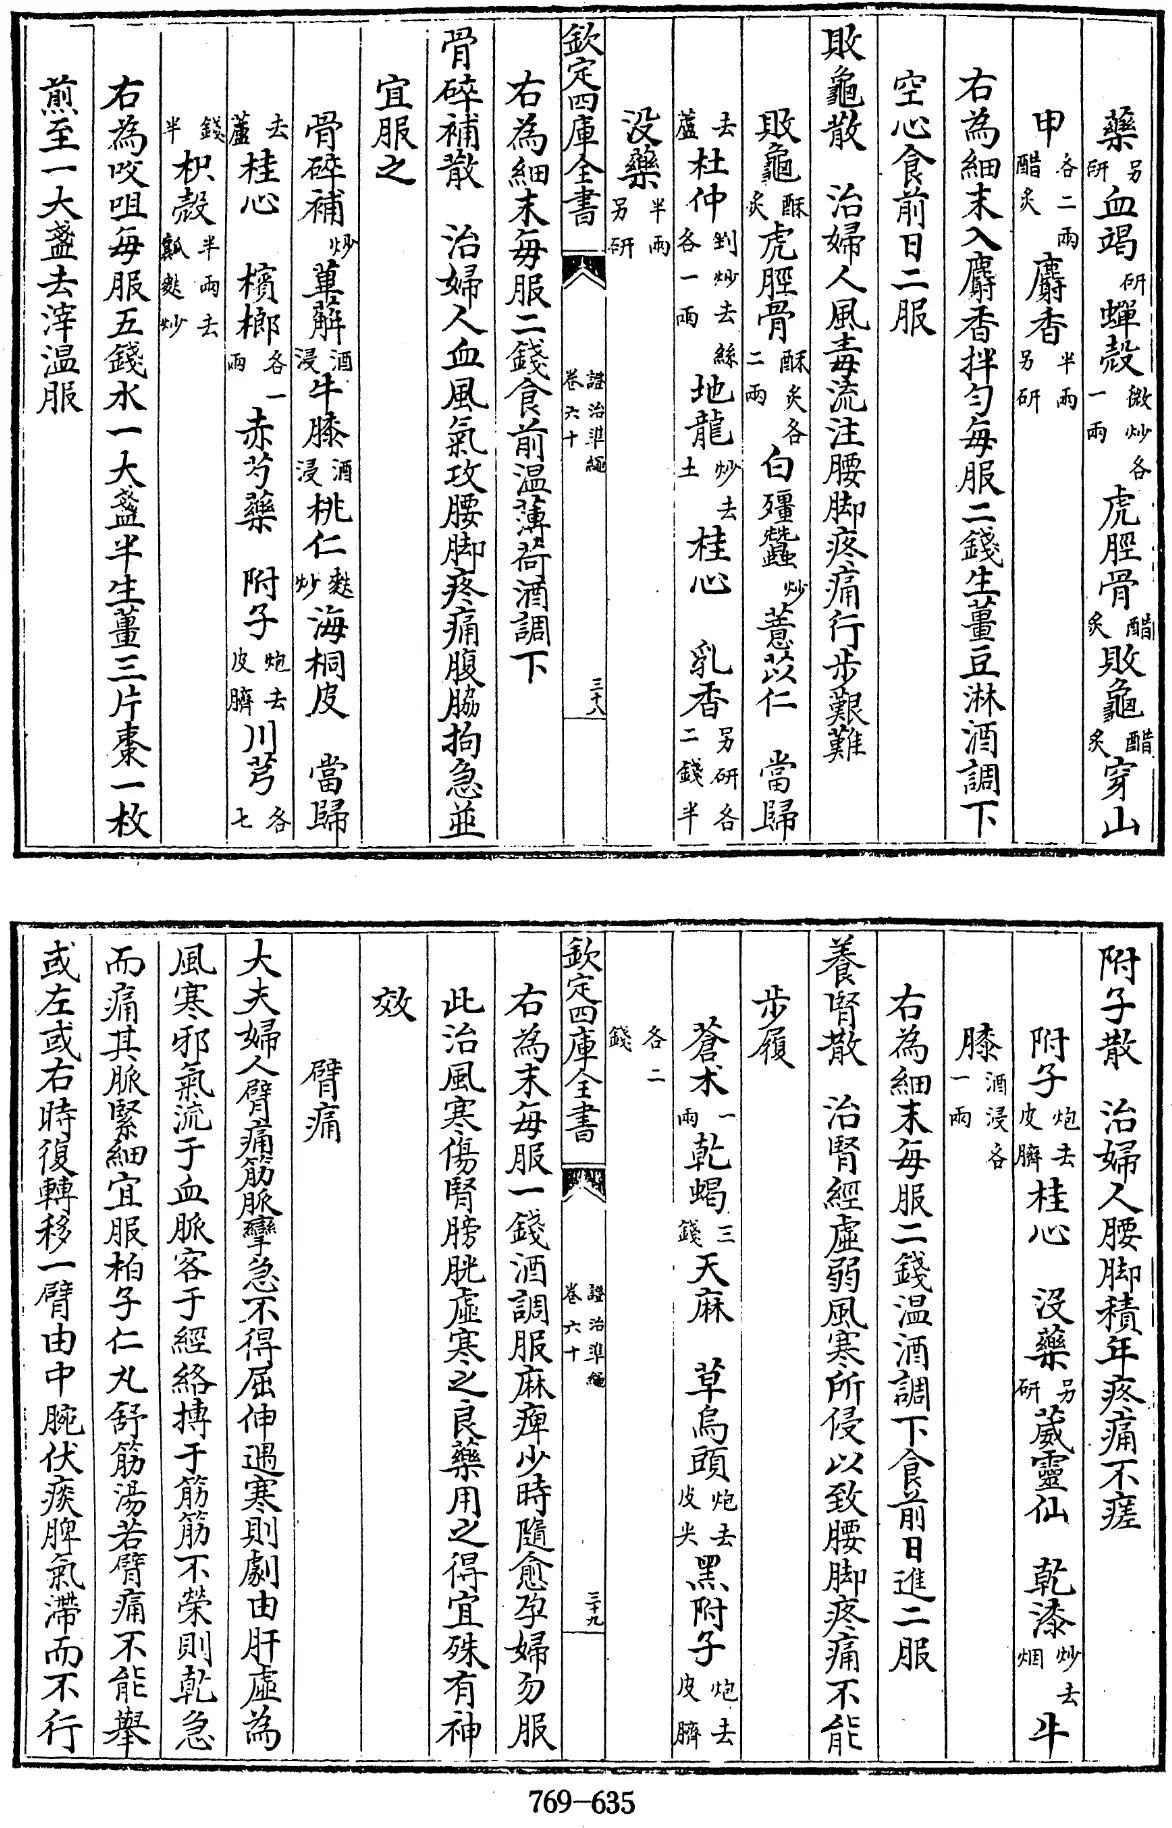 藥另研血竭研蟬殼微炒各一兩虎脛骨醋炙敗龜醋炙穿山
甲各二兩醋炙麝香半兩另研
右為細末入麝香拌勻每服二錢生薑豆淋酒調下
空心食前日二服
敗龜散　治婦人風毒流注腰脚疼痛行步艱難
敗龜酥炙虎脛骨酥炙各二兩白殭蠶炒薏苡仁　當歸
去蘆杜仲剉炒去絲各一兩地龍炒去土桂心　乳香另研各二錢半
沒藥半兩另研
欽定四庫全書　證治準繩卷六十　三十八
右為細末每服二錢食前温薄荷酒調下
骨碎補散　治婦人血風氣攻腰脚疼痛腹脇拘急並
宜服之
骨碎補炒萆薢酒浸牛膝酒浸桃仁麩炒海桐皮　當歸
去蘆桂心　檳榔各一兩赤芍藥　附子炮去皮臍川芎各七
錢半枳殼半兩去瓤麩炒
右為㕮咀每服五錢水一大盞半生薑三片棗一枚
煎至一大盞去滓温服
附子散　治婦人腰脚積年疼痛不瘥
附子炮去皮臍桂心　沒藥另研葳靈仙　乾漆炒去烟牛
膝酒浸各一兩
右為細末每服二錢温酒調下食前日進二服
養腎散　治腎經虛弱風寒所侵以致腰脚疼痛不能
步履
蒼术一兩乾蝎三錢天麻　草烏頭炮去皮尖黑附子炮去皮臍
各二錢
欽定四庫全書　證治準繩卷六十　三十九
右為末每服一錢酒調服麻痺少時隨愈孕婦勿服
此治風寒傷腎膀胱虛寒之良藥用之得宜殊有神
效
臂痛
大夫婦人臂痛筋脈攣急不得屈伸遇寒則劇由肝虛為
風寒邪氣流于血脈客于經絡搏于筋筋不榮則乾急
而痛其脈緊細宜服柏子仁丸舒筋湯若臂痛不能舉
或左或右時復轉移一臂由中腕伏痰脾氣滯而不行
769-635